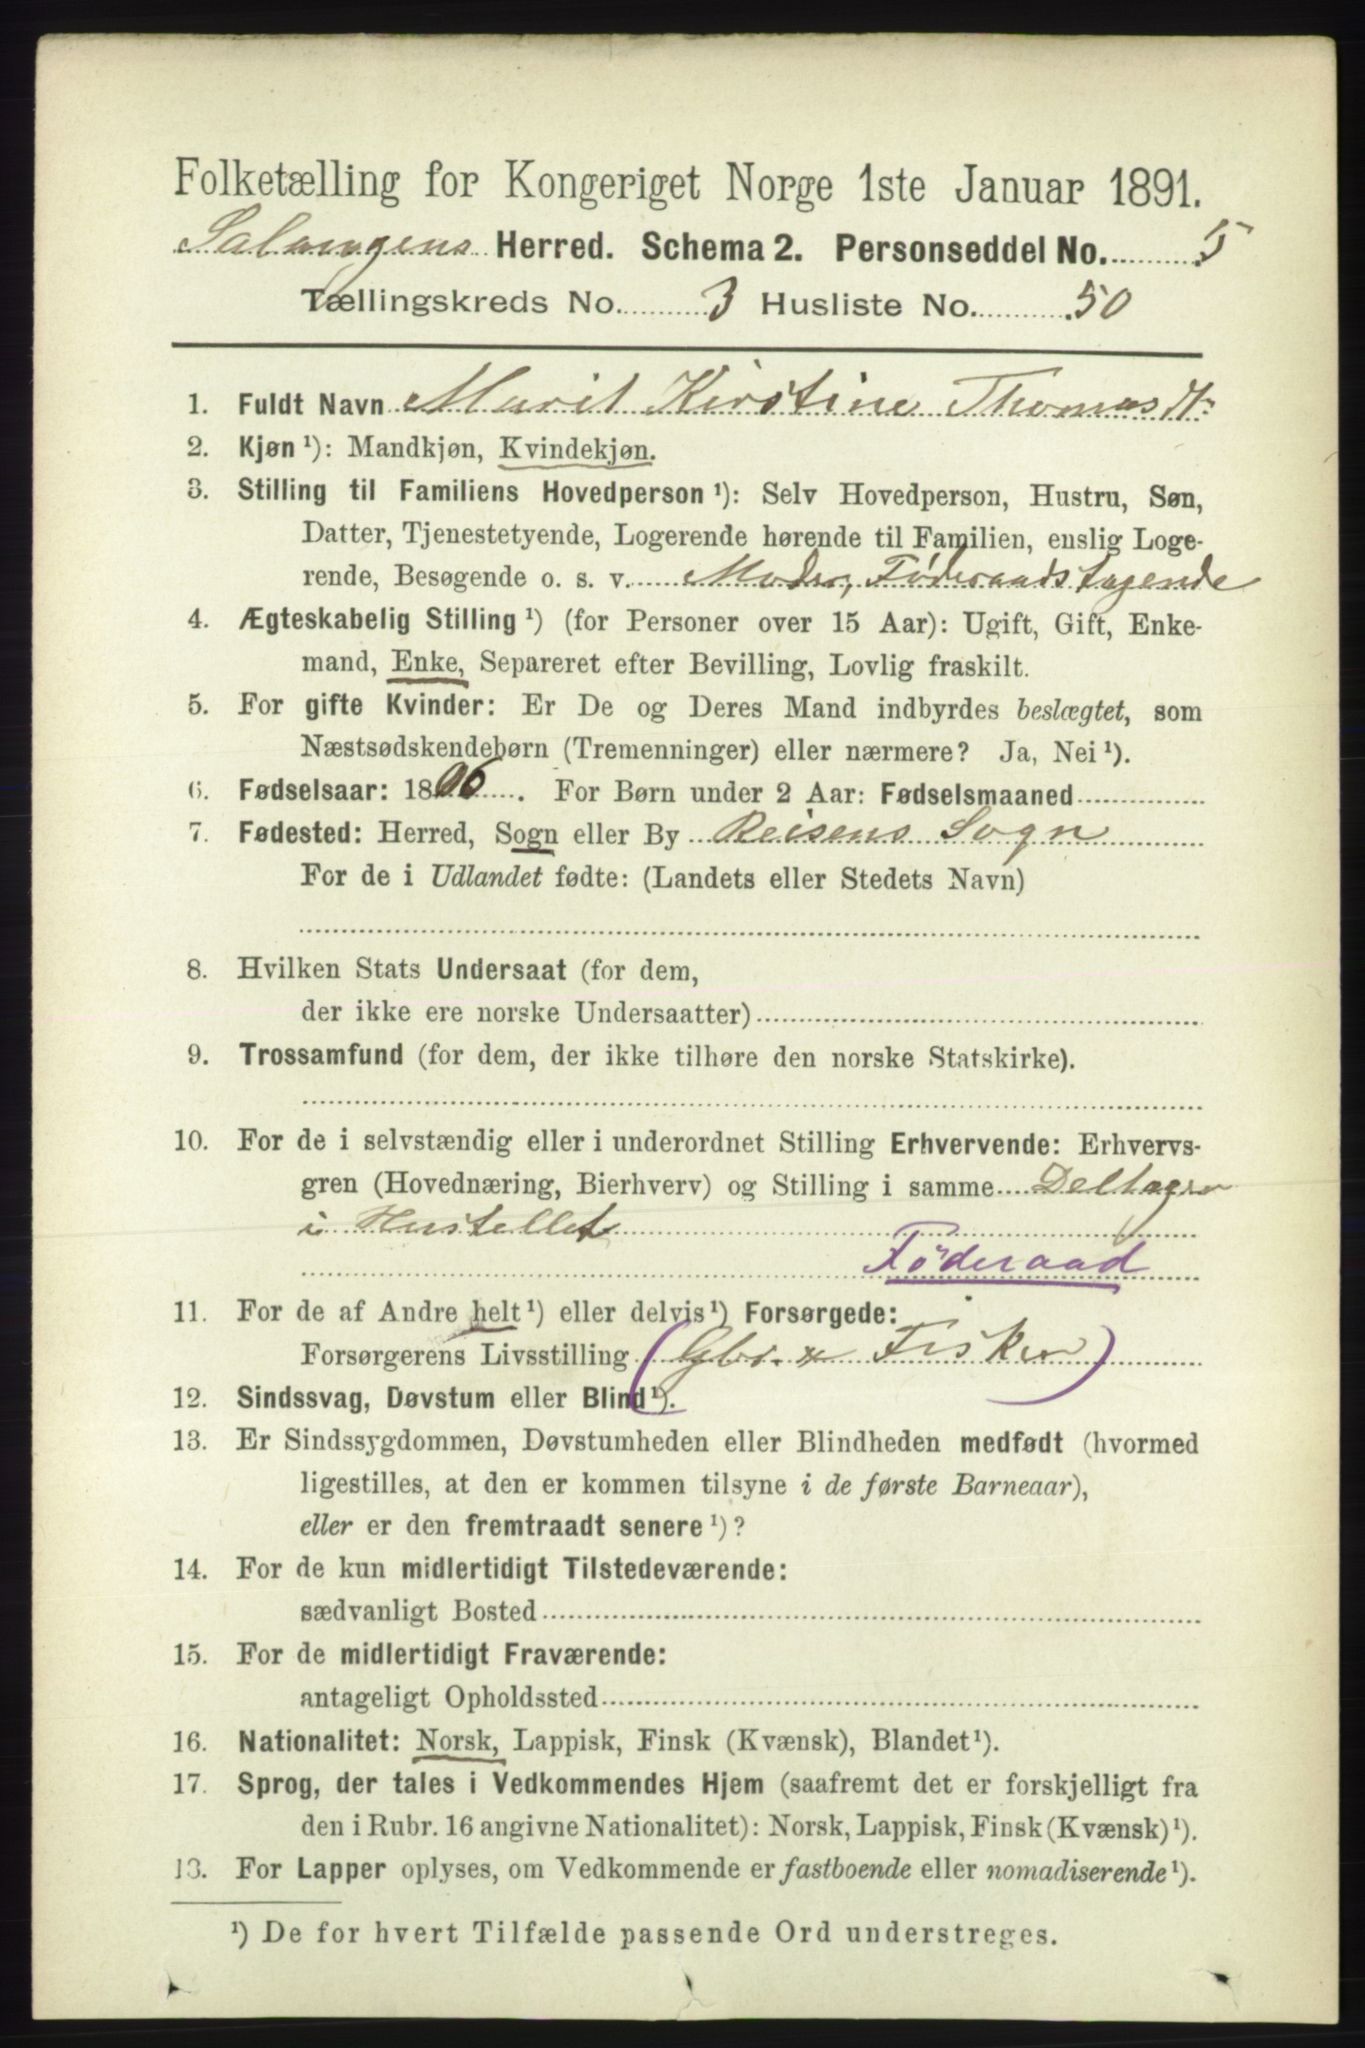 Folketælling for Kongeriget Norge 1ste Januar 1891.
Salangens Herred. Schema 2. Personseddel No. 5
Tællingskreds No. 3 Husliste No. 50
1. Fuldt Navn Marit Kirstine Thomasdtr
2. Kjøn ¹): Mandkjøn, Kvindekjøn.
3. Stilling til Familiens Hovedperson ¹): Selv Hovedperson, Hustru, Søn,
Datter, Tjenestetyende, Logerende hørende til Familien, enslig Loge-
rende, Besøgende o. s. v. Moder, Føderaadstagende
4. Ægteskabelig Stilling ¹) (for Personer over 15 Aar): Ugift, Gift, Enke-
mand, Enke, Separeret efter Bevilling, Lovlig fraskilt.
5. For gifte Kvinder: Er De og Deres Mand indbyrdes beslægtet, som
Næstsødskendebørn (Tremenninger) eller nærmere? Ja, Nei ¹).
6. Fødselsaar: 1806. For Børn under 2 Aar: Fødselsmaaned
7. Fødested: Herred, Sogn eller By Reisens Sogn
For de i Udlandet fødte: (Landets eller Stedets Navn)
8. Hvilken Stats Undersaat (for dem,
der ikke ere norske Undersaatter)
9. Trossamfund (for dem, der ikke tilhøre den norske Statskirke).
10. For de i selvstændig eller i underordnet Stilling Erhvervende: Erhvervs-
gren (Hovednæring, Bierhverv) og Stilling i samme Deltager
i Hustellet
Føderaad
11. For de af Andre helt ¹) eller delvis ¹) Forsørgede:
Forsørgerens Livsstilling (Gbr. x Fisker)
12. Sindssvag, Døvstum eller Blind ¹).
13. Er Sindssygdommen, Døvstumheden eller Blindheden medfødt (hvormed
ligestilles, at den er kommen tilsyne i de første Barneaar),
eller er den fremtraadt senere ¹)?
14. For de kun midlertidigt Tilstedeværende:
sædvanligt Bosted
15. For de midlertidigt Fraværende:
antageligt Opholdssted
16. Nationalitet: Norsk, Lappisk, Finsk (Kvænsk), Blandet ¹).
17. Sprog, der tales i Vedkommendes Hjem (saafremt det er forskjelligt fra
den i Rubr. 16 angivne Nationalitet): Norsk, Lappisk, Finsk (Kvænsk) ¹).
13. For Lapper oplyses, om Vedkommende er fastboende eller nomadiserende ¹).
¹) De for hvert Tilfælde passende Ord understreges.